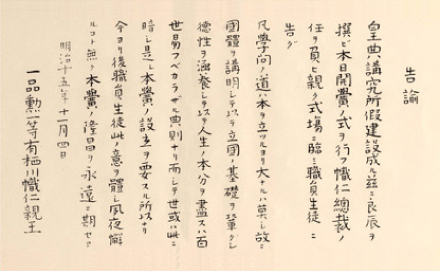 告諭
皇典講究所假建設成ルヲ茲ニ良辰ヲ
撰ビ本日開黌ノ式ヲ行フ幟仁總裁ノ
任ヲ負ヒ親ク式場ニ臨ミ職員生徒ニ
告グ
凡學問ノ道ハ本ヲ立ツルヨリ大ナルハ莫シ故ニ
國體ヲ講明シテ以テ立國ノ基礎ヲ鞏クシ
德性ヲ涵養シテ以テ人生ノ本分ヲ盡スハ百
世易フベカラザル典則ナリ而シテ世或ハ此ニ
暗シ是レ本黌ノ設立ヲ要スル所以ナリ
今ヨリ後職員生徒此ノ意ヲ體シ夙夜懈
ルコト無ク本黌ノ隆昌ヲ永遠ニ期セヨ
明治十五年十一月四日
一品勲一等有栖川幟仁親王